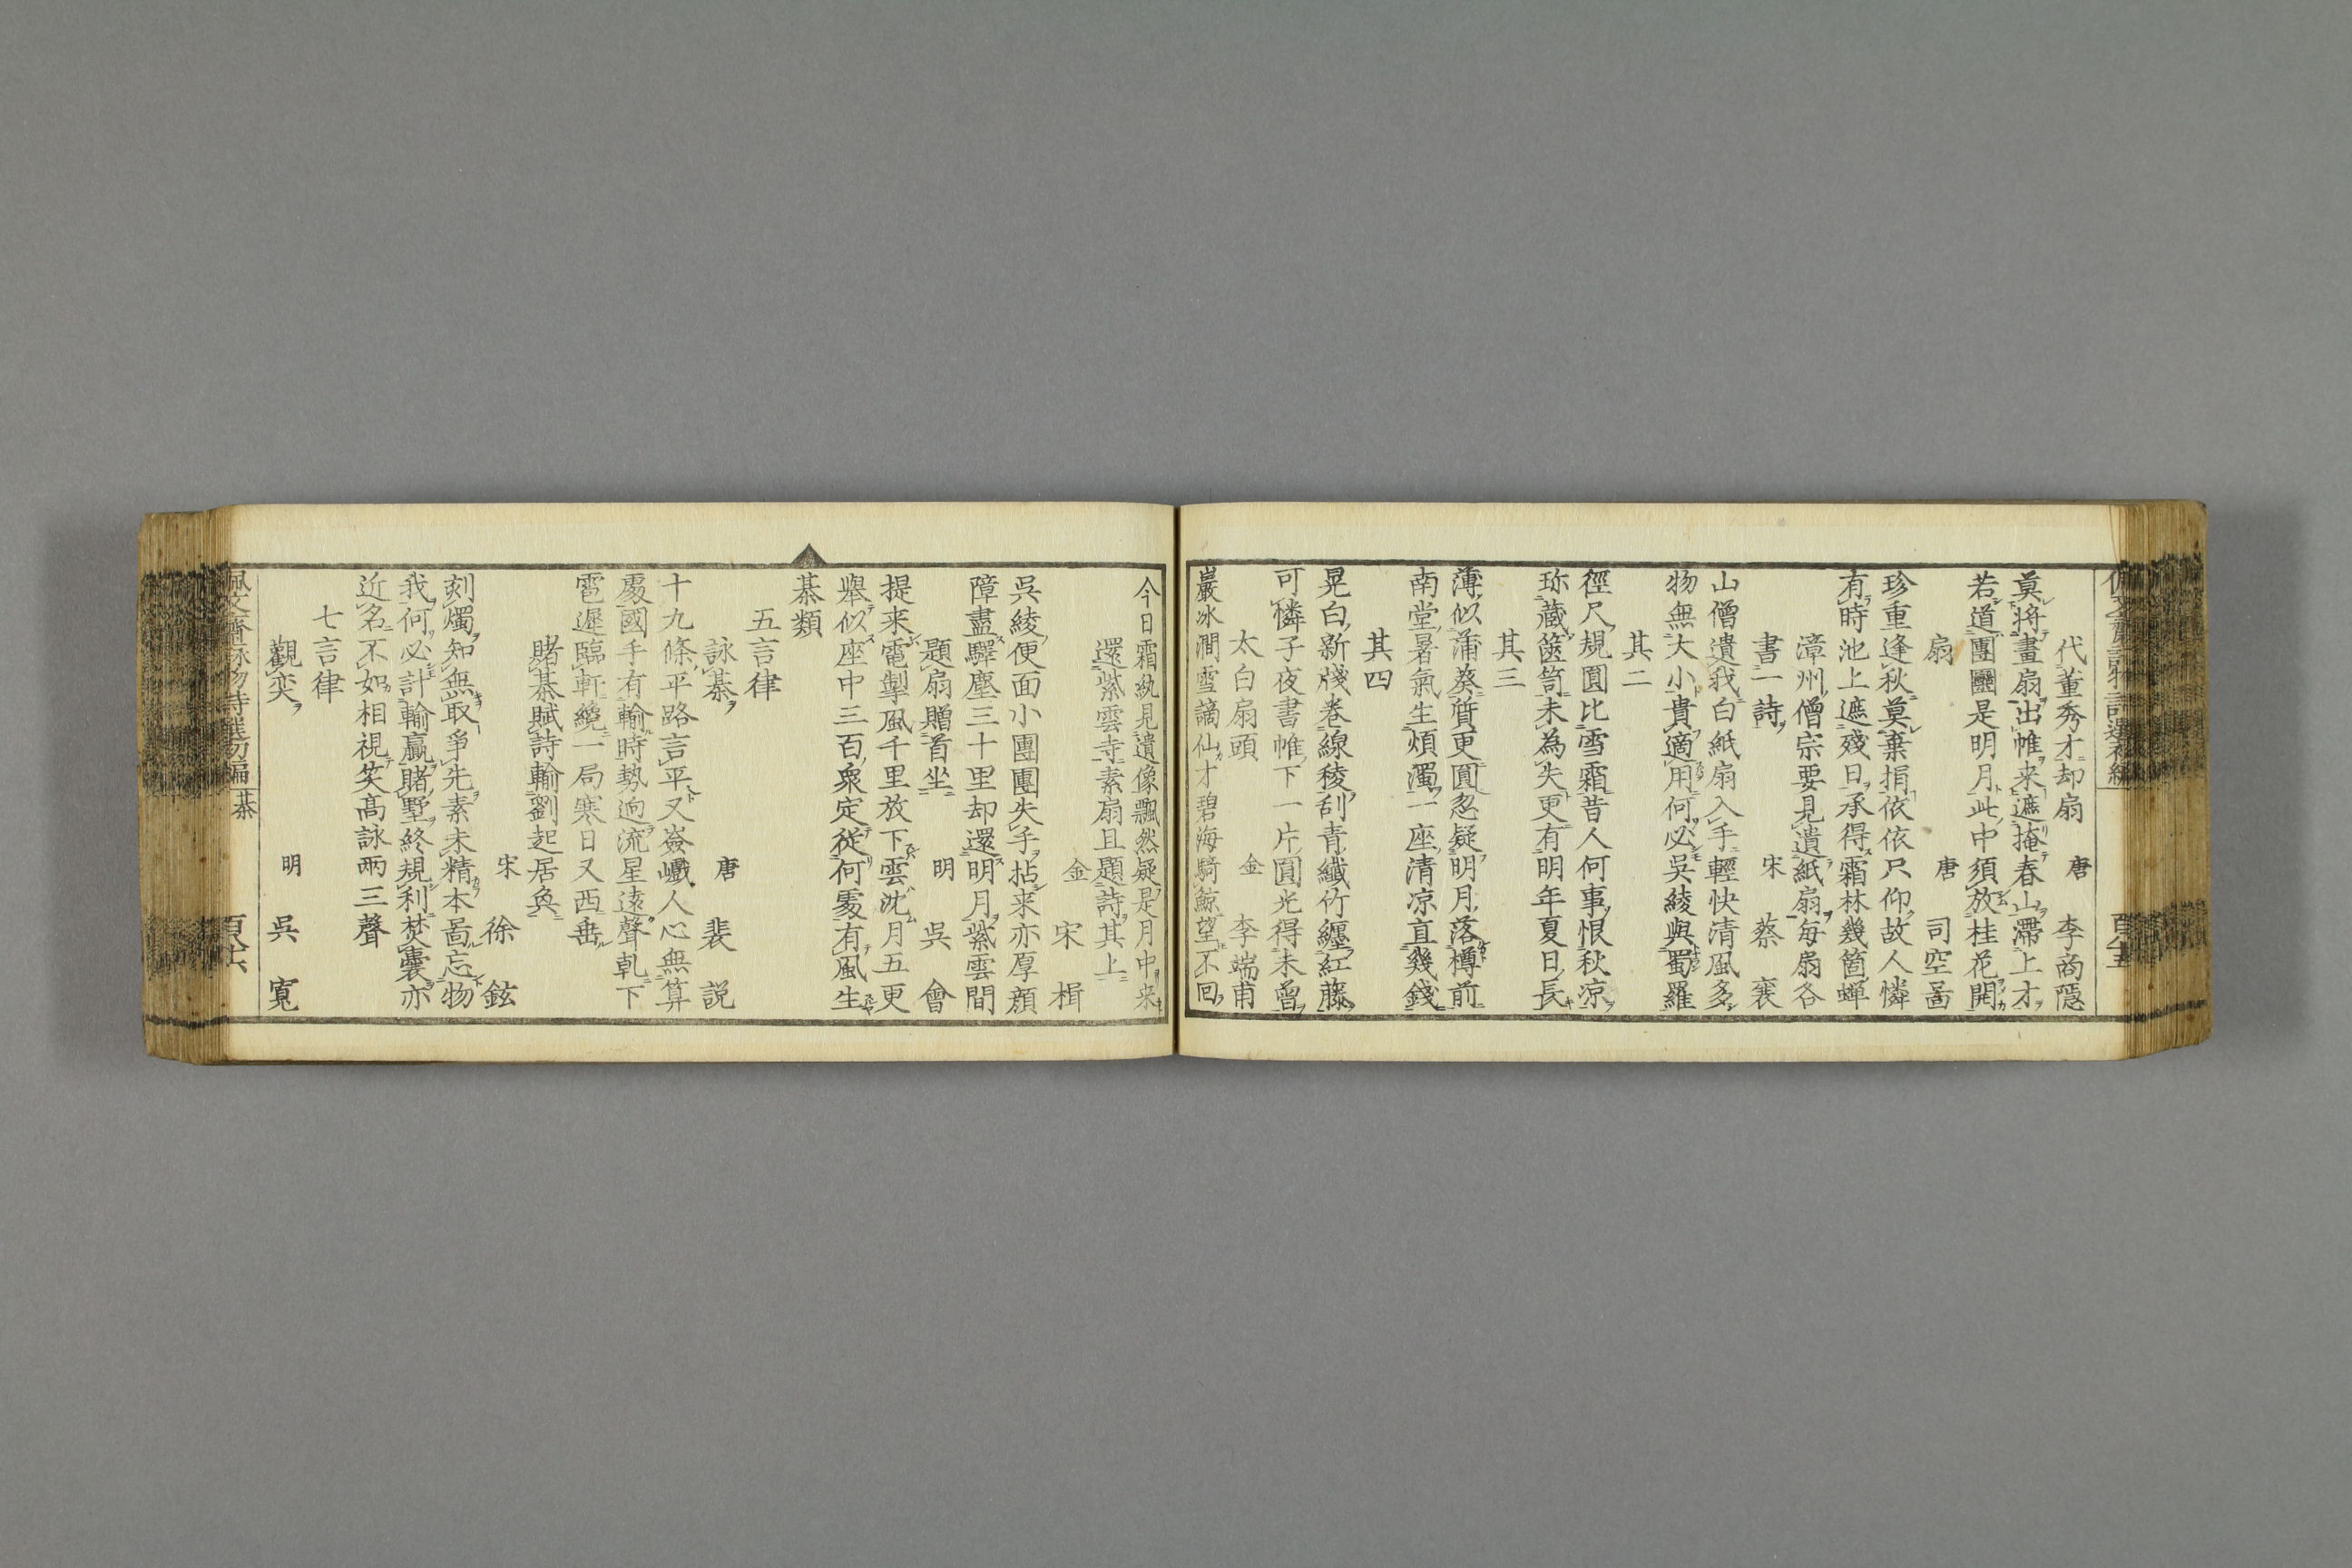 代董秀才却扇 唐 李商隱
莫將畫扇出帷来遮掩春山滯上才
若道團團是明月此中須放桂花開
扇 唐 司空啚
珍重逢秋莫棄捐依依只仰故人憐
有時池上遮殘日承得霜林幾箇蟬
漳州僧宗要見遺紙扇每扇各
書一詩 宋 蔡襄
山僧遺我白紙扇入手輕快清風多
物無大小貴適用何必吳綾與蜀羅
其二
徑尺規圓比雪霜昔人何事恨秋凉
珎藏篋笥未為失更有明年夏日長
其三
薄似蒲葵質更圓忽疑明月落樽前
南堂暑氣生煩濁一座清凉直幾錢
其四
晃白新牋卷線稜刮青纖竹纏紅藤
可憐子夜書帷下一片圓光得未曾
太白扇頭 金 李端甫
巖冰澗雪謫仙才碧海騎鯨望不回
今日霜紈見遺像飄然疑是月中来
還紫雲寺素扇且題詩其上
金 宋楫
吳綾便面小團團失手拈来亦厚顔
障盡驛塵三十里却還明月紫雲間
題扇贈首坐 明 吳會
提来電掣風千里放下雲沈月五更
舉似座中三百衆定從何處有風生
棊類
五言律
詠棊 唐 裴説
十九條平路言平又嶮巇人心無算
處國手有輸時勢迥流星遠聲乹下
雹遲臨軒纔一局寒日又西垂
賭棊賦詩輸劉起居奐
宋 徐鉉
刻燭知無取爭先素未精本啚忘物
我何必計輸贏賭墅終規利焚囊亦
近名不如相視笑高詠兩三聲
七言律
觀奕 明 吳寬
佩文齋詠物詩選初編 棊 百八六